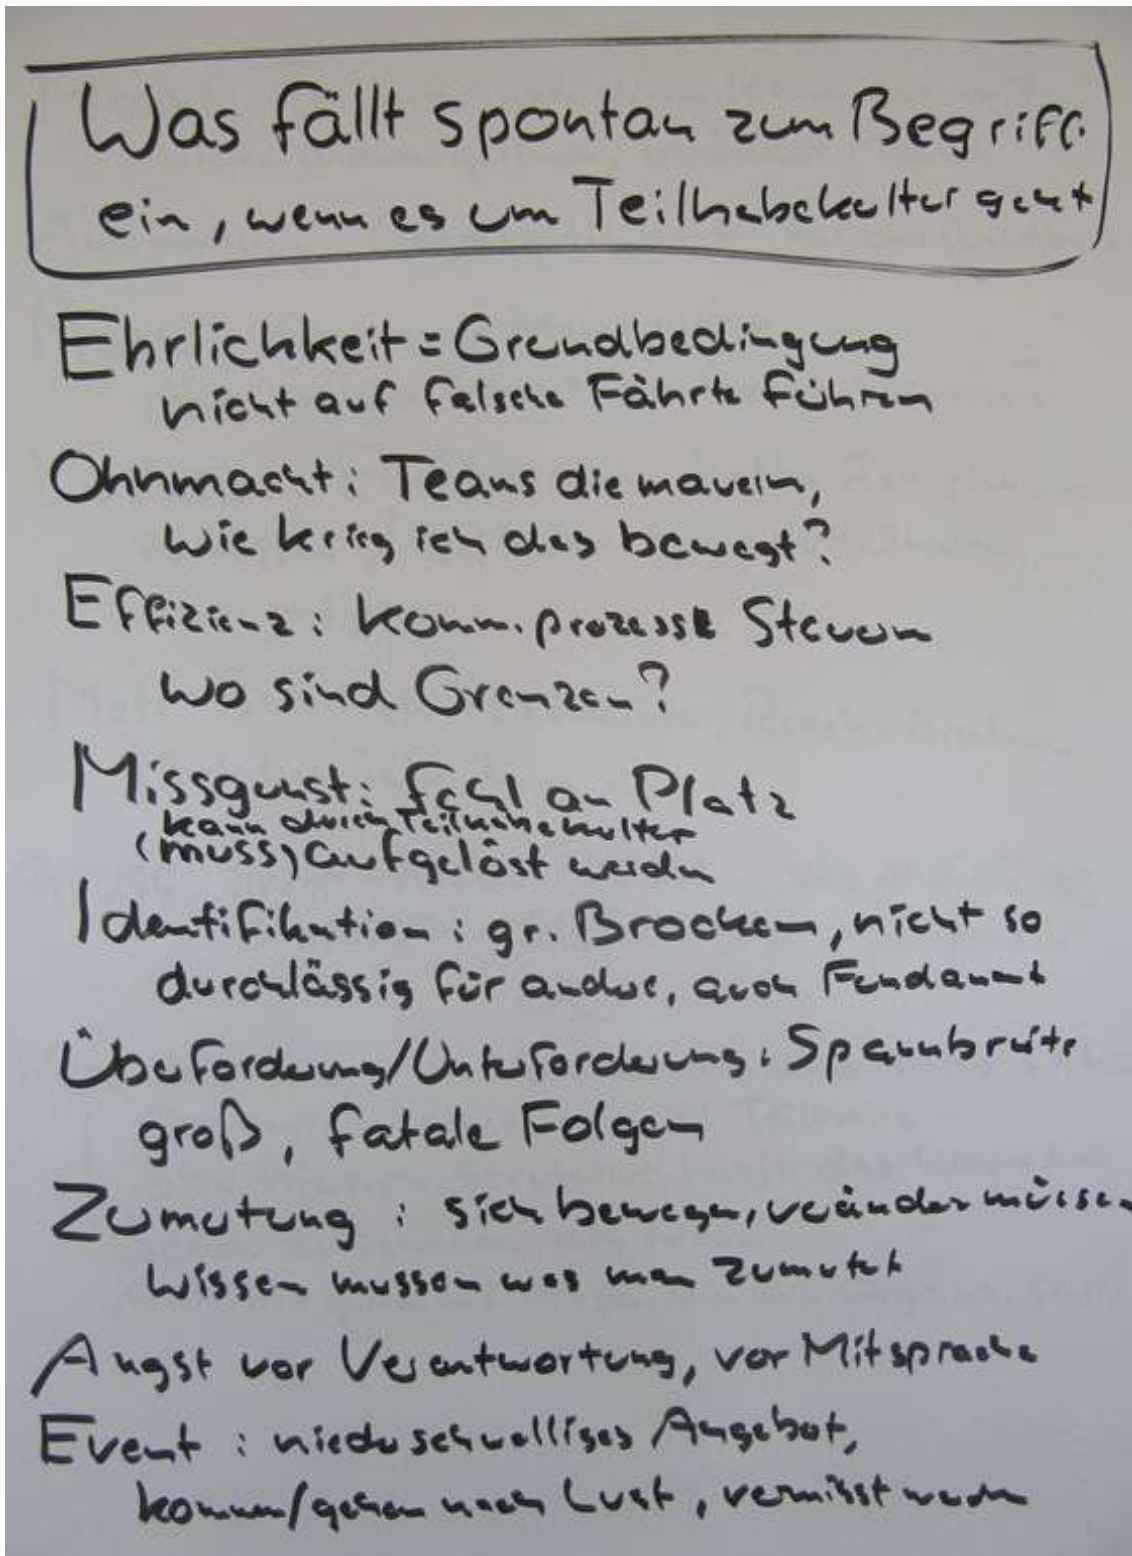 Was fällt spontan zum Begriff
ein, wenn es um Teilhabekultur geht
Ehrlichkeit = Grundbedingung
nicht auf falsche Fährte führen
Ohnmacht: Teams die mauern,
wie krieg ich das bewegt?
Effizienz: Komm.prozesse Steuern
wo sind Grenzen?
Missgunst: fehl am Platz
kann durch Teilhabekultur
(muss) aufgelöst werden
Identifikation: gr. Brocken, nicht so
durchlässig für andere, auch Fundament
Überforderung/Unterforderung: Spannbreite
groß, fatale Folgen
Zumutung: sich bewegen, verändern müssen
wissen mussen was man zumutet
Angst vor Verantwortung, vor Mitsprache
Event: niederschwelliges Angebot,
kommen/gehen nach Lust, vermisst werden